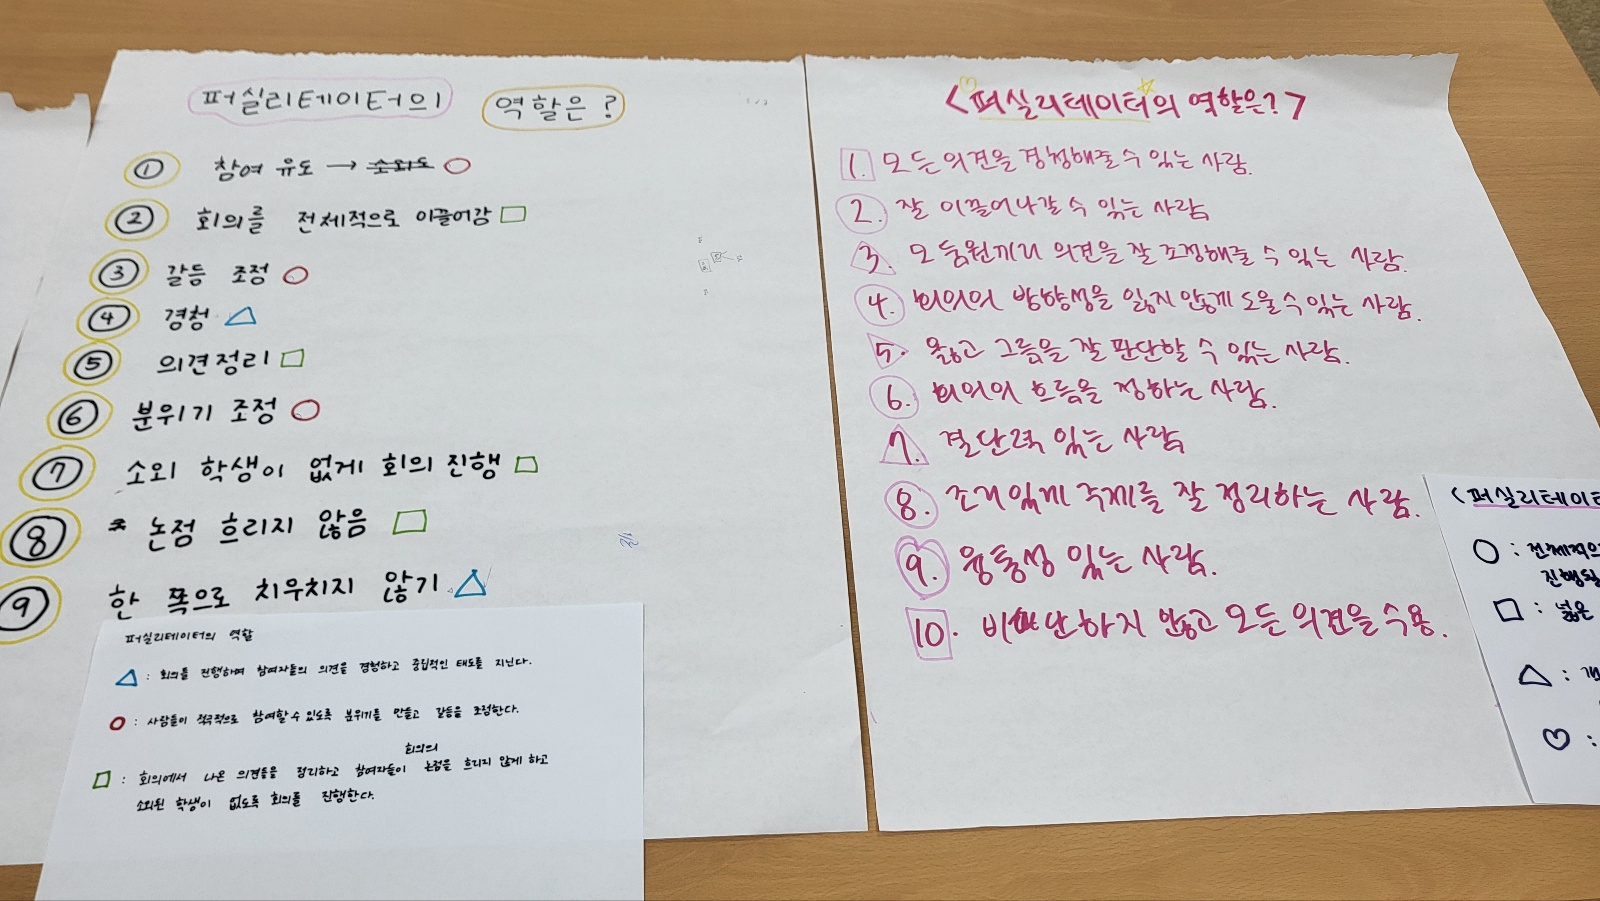 퍼실리테이터의 역할은?
① 참여 유도 → 소외도
② 회의를 전체적으로 이끌어감
③ 갈등 조정
④ 경청
⑤ 의견정리
⑥ 분위기 조정
⑦ 소외 학생이 없게 회의 진행
⑧ 논점 흐리지 않음
⑨ 한 쪽으로 치우치지 않기
퍼실리테이터의 역할
△ : 회의를 진행하며 참여자들의 의견을 경청하고 중립적인 태도를 지닌다.
○ : 사람들이 적극적으로 참여할 수 있도록 분위기를 만들고 갈등을 조정한다.
회의의
□ : 회의에서 나온 의견들을 정리하고 참여자들이 논점을 흐리지 않게 하고
소외된 학생이 없도록 회의를 진행한다.
<퍼실리테이터의 역할은?>
1. 모든 의견을 경청해줄 수 있는 사람.
2. 잘 이끌어나갈 수 있는 사람
3. 모둠원끼리 의견을 잘 조정해줄 수 있는 사람.
4. 회의의 방향성을 잃지 않게 도울 수 있는 사람.
5. 옳고 그름을 잘 판단할 수 있는 사람.
6. 회의의 흐름을 정하는 사람.
7. 결단력 있는 사람
8. 조리있게 주제를 잘 정리하는 사람.
9. 융통성 있는 사람.
10. 비판단하지 않고 모든 의견을 수용.
<퍼실리테이터
○ : 전체적으
진행될
□ : 넓은
△ : 개
♡ :